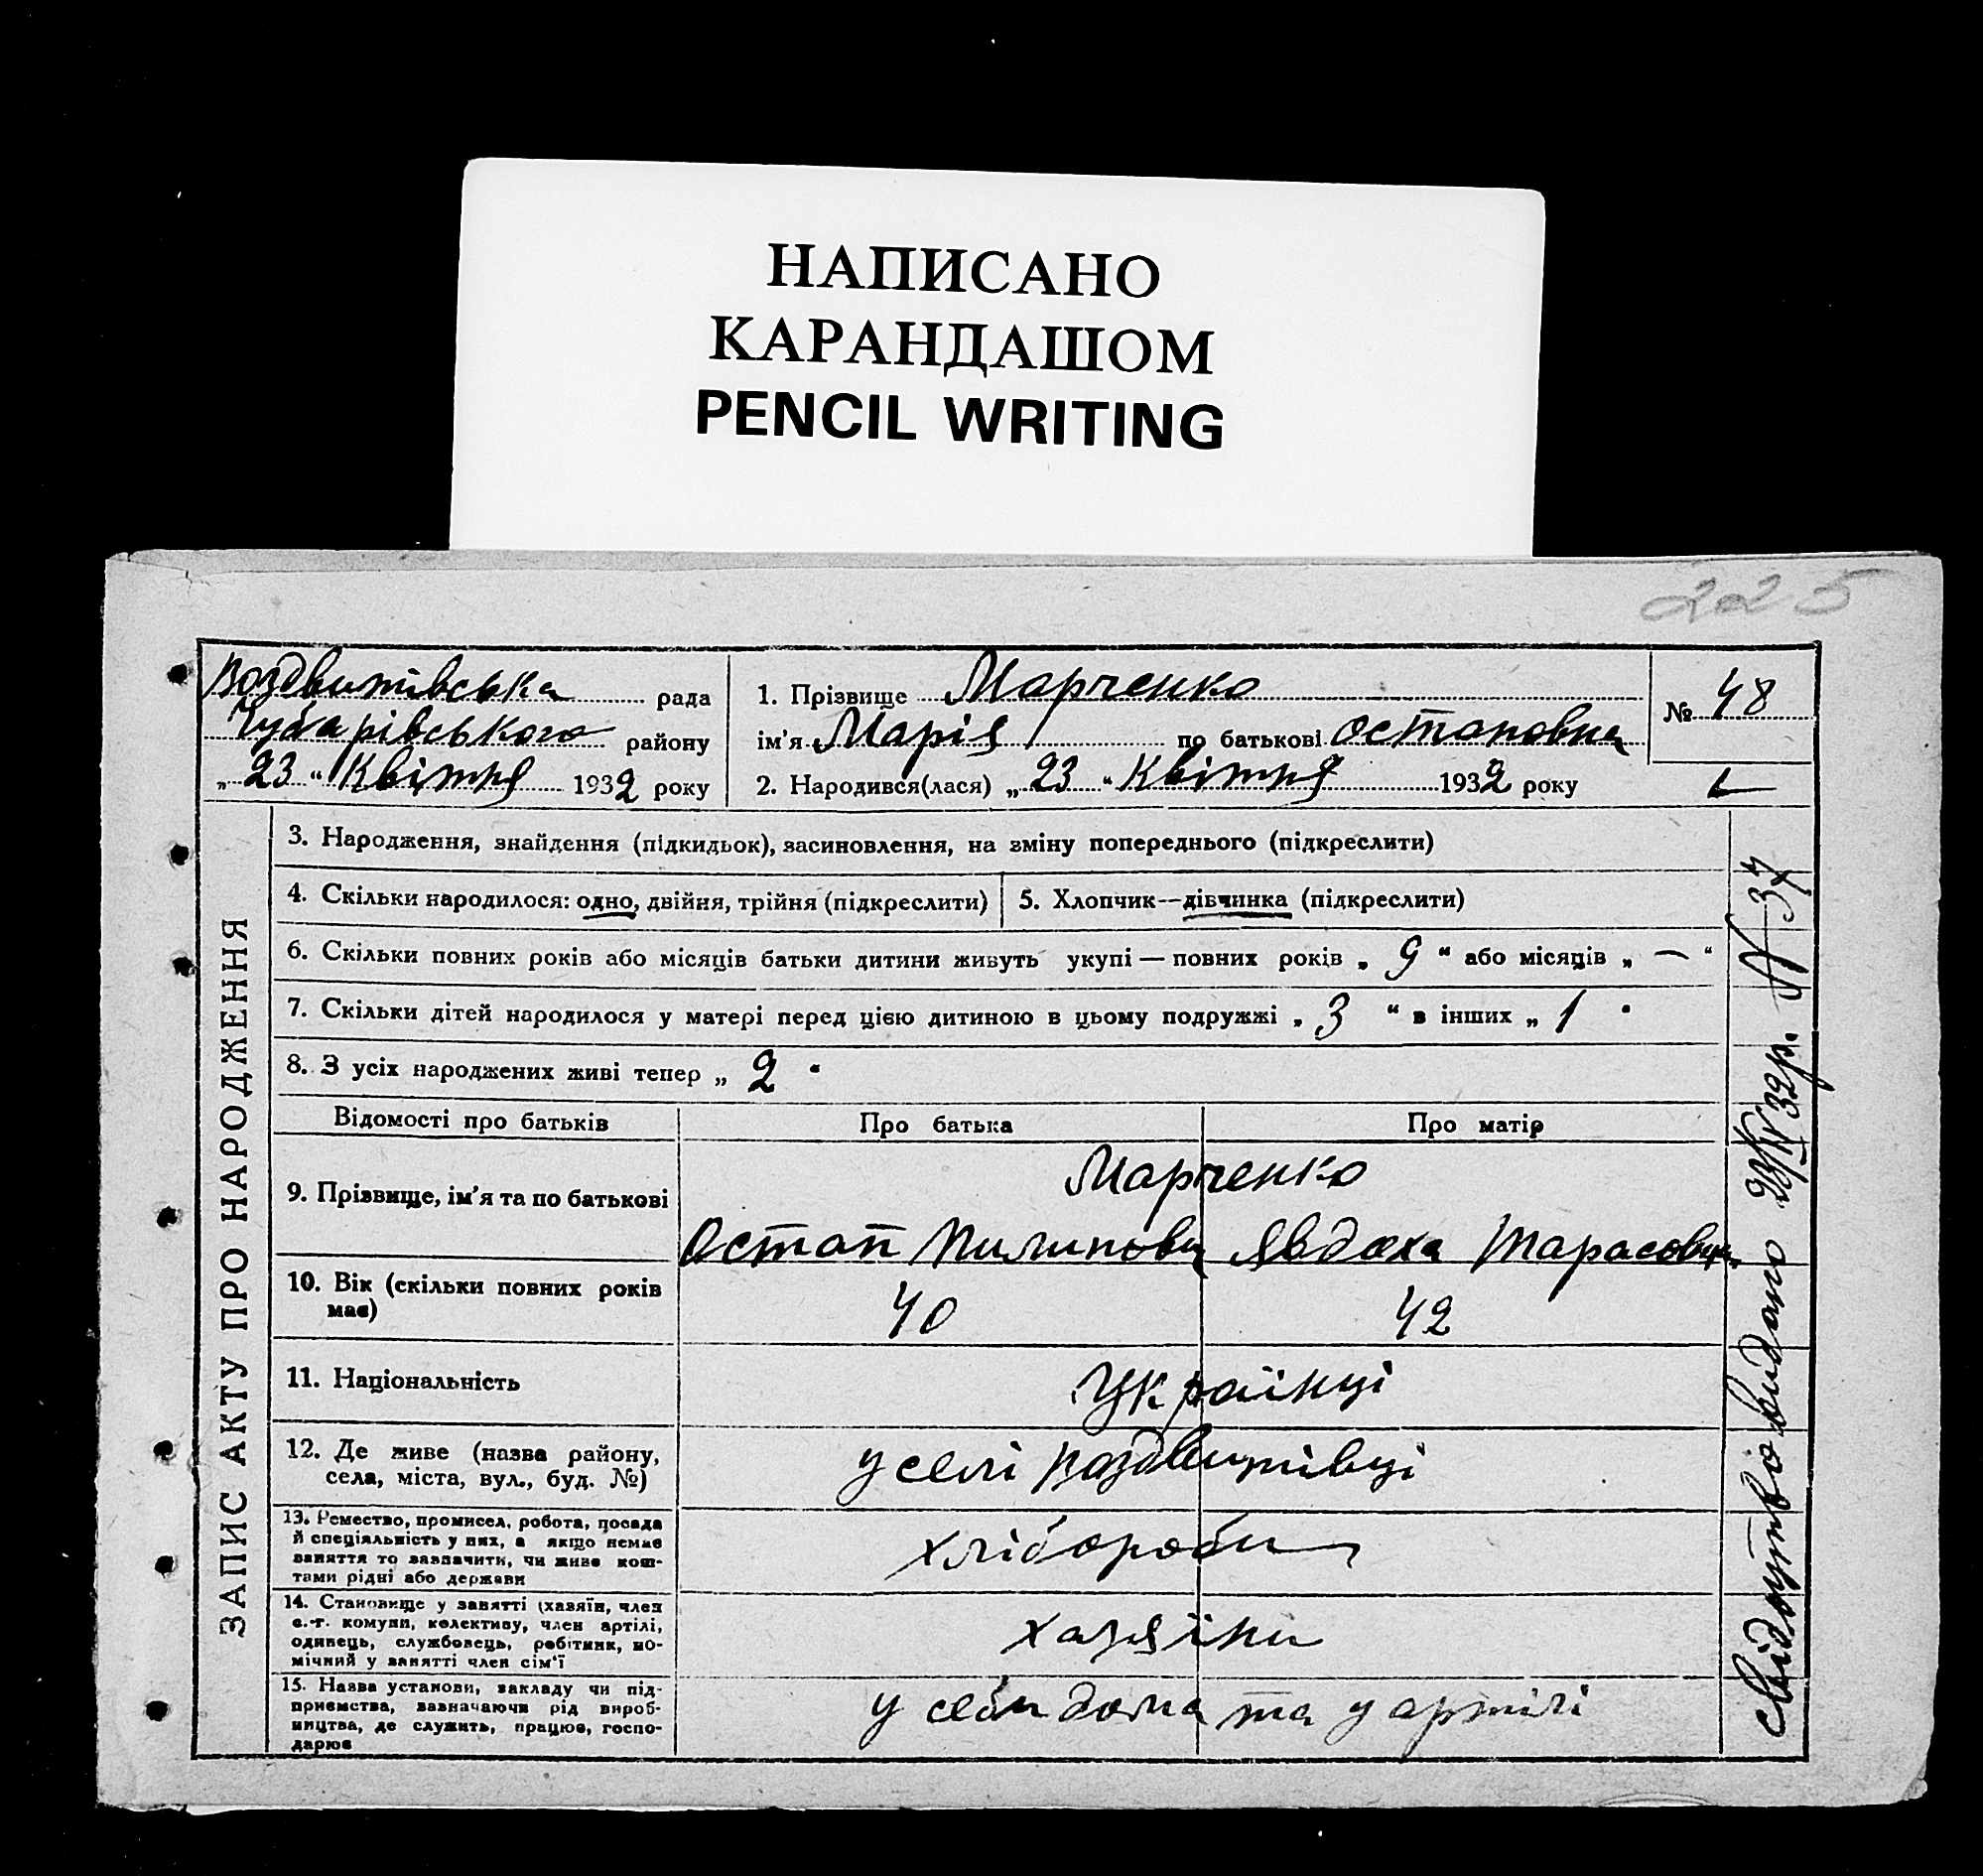 НАПИСАНО
КАРАНДАШОМ
PENCIL WRITING
225
Воздвижівська рада
Чубарівського району
„23“ Квітня 1932 року
1. Прізвище Марченко
ім'я Марія по батькові Остаповна
2. Народився(лася) „23“ Квітня 1932 року
№ 48
ЗАПИС АКТУ ПРО НАРОДЖЕННЯ
3. Народження, знайдення (підкидьок), засиновлення, на зміну попереднього (підкреслити)
4. Скільки народилося: одно, двійня, трійня (підкреслити)
5. Хлопчик—дівчинка (підкреслити)
6. Скільки повних років або місяців батьки дитини живуть укупі — повних років „ 9 “ або місяців „ — “
7. Скільки дітей народилося у матері перед цією дитиною в цьому подружжі „ 3 “ в інших „ 1 "
8. З усіх народжених живі тепер „ 2 "
Відомості про батьків Про батька Про матір
9. Прізвище, ім'я та по батькові
Марченко
Остап Пилипови Явдоха Тарасовна
10. Вік (скільки повних років
має)
40 42
11. Національність
Українці
12. Де живе (назва району,
села, міста, вул., буд. №)
у селі Воздвижівці
13. Ремество, промисел, робота, посада
й спеціальність у них, а якщо немає
заняття то зазначити, чи живе кош-
тами рідні або держави
хлібороби
14. Становище у занятті (хазяїн, член
с.-г. комуни, колективу, член артілі,
одинець, службовець, робітник, по-
мічний у занятті член сім'ї
хазяіни
15. Назва установи, закладу чи під-
приємства, зазначаючи рід вироб-
ництва, де служить, працює, госпо-
дарює
у себи дома та у артілі
Свідоцтво видано 23/IV 32 р. № 37